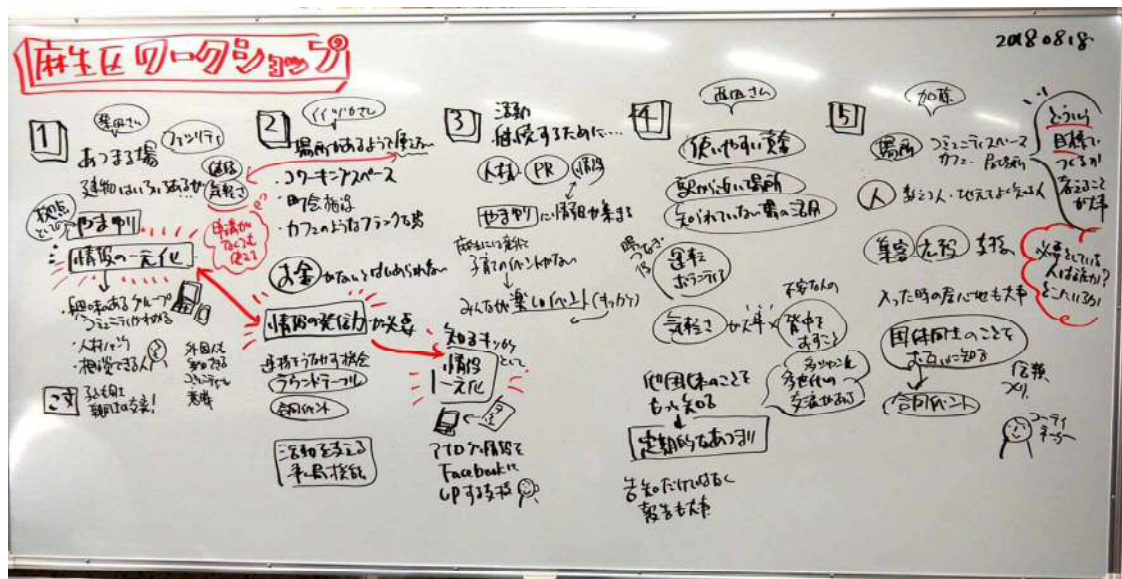 麻生区ワークショップ
20180818
1
柴田さん
ファシリティ
あつまる場
建物はいろいろあるが
気軽さ
拠点
として
やまゆり
情報の一元化
申請が
なくても
使える
・興味のあるグループ
コミュニティがわかる
・人材バンク
・相談できる人
外国人も
参加できる
こす
2
イイヅカさん
場所があるようで使えない
・コワーキングスペース
・町会施設
・カフェのようなフランクな場
お金がないとはじめられない
情報の発信力が必要
連携をうながす機会
ラウンドテーブル
合同イベント
活動を支える
事務局機能
3
活動
継続するために…
人材
PR
情報
やまゆりに情報が集まる
子育てのイベントがない
みんなが楽しいイベント(きっかけ)
知るキッカケ
として
情報
一元化
アナログ情報を
Facebookに
UPする支援
4
使いやすい資金
駅から近い場所
知られていない場の活用
運転
ボランティア
気軽さが大事
不安な人の
背中を
おすこと
他団体のことを
もっと知る
多世代の
交流がある
定期的なあつまり
告知だけではなく
報告も大事
5
加藤
場所
コミュニティスペース
カフェ・居場所
人
集客
広報
支援
入った時の居心地も大事
団体同士のことを
お互いに知る
合同イベント
信頼
コーディ
ネーター
どういう
目標で
つくるか
考えること
が大事
必要としている
人は誰か?
どこにいるか